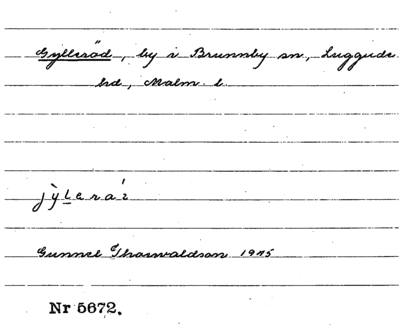 Gylleröd, by i Brunnby sn, Luggude
hd, Malm. l.
jỳlera´ı
Gunnel Thorwaldson 1945
Nr 5672.